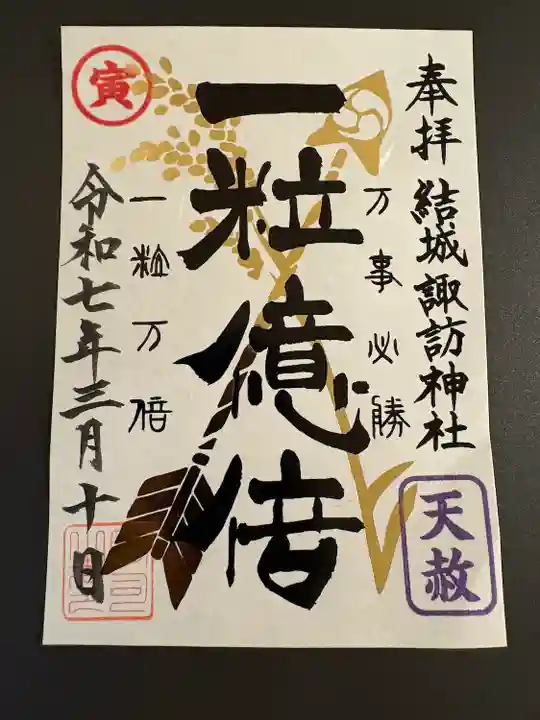 奉拝 結城諏訪神社
天赦
万事必勝
一粒億倍
一粒万倍
寅
令和七年三月十日